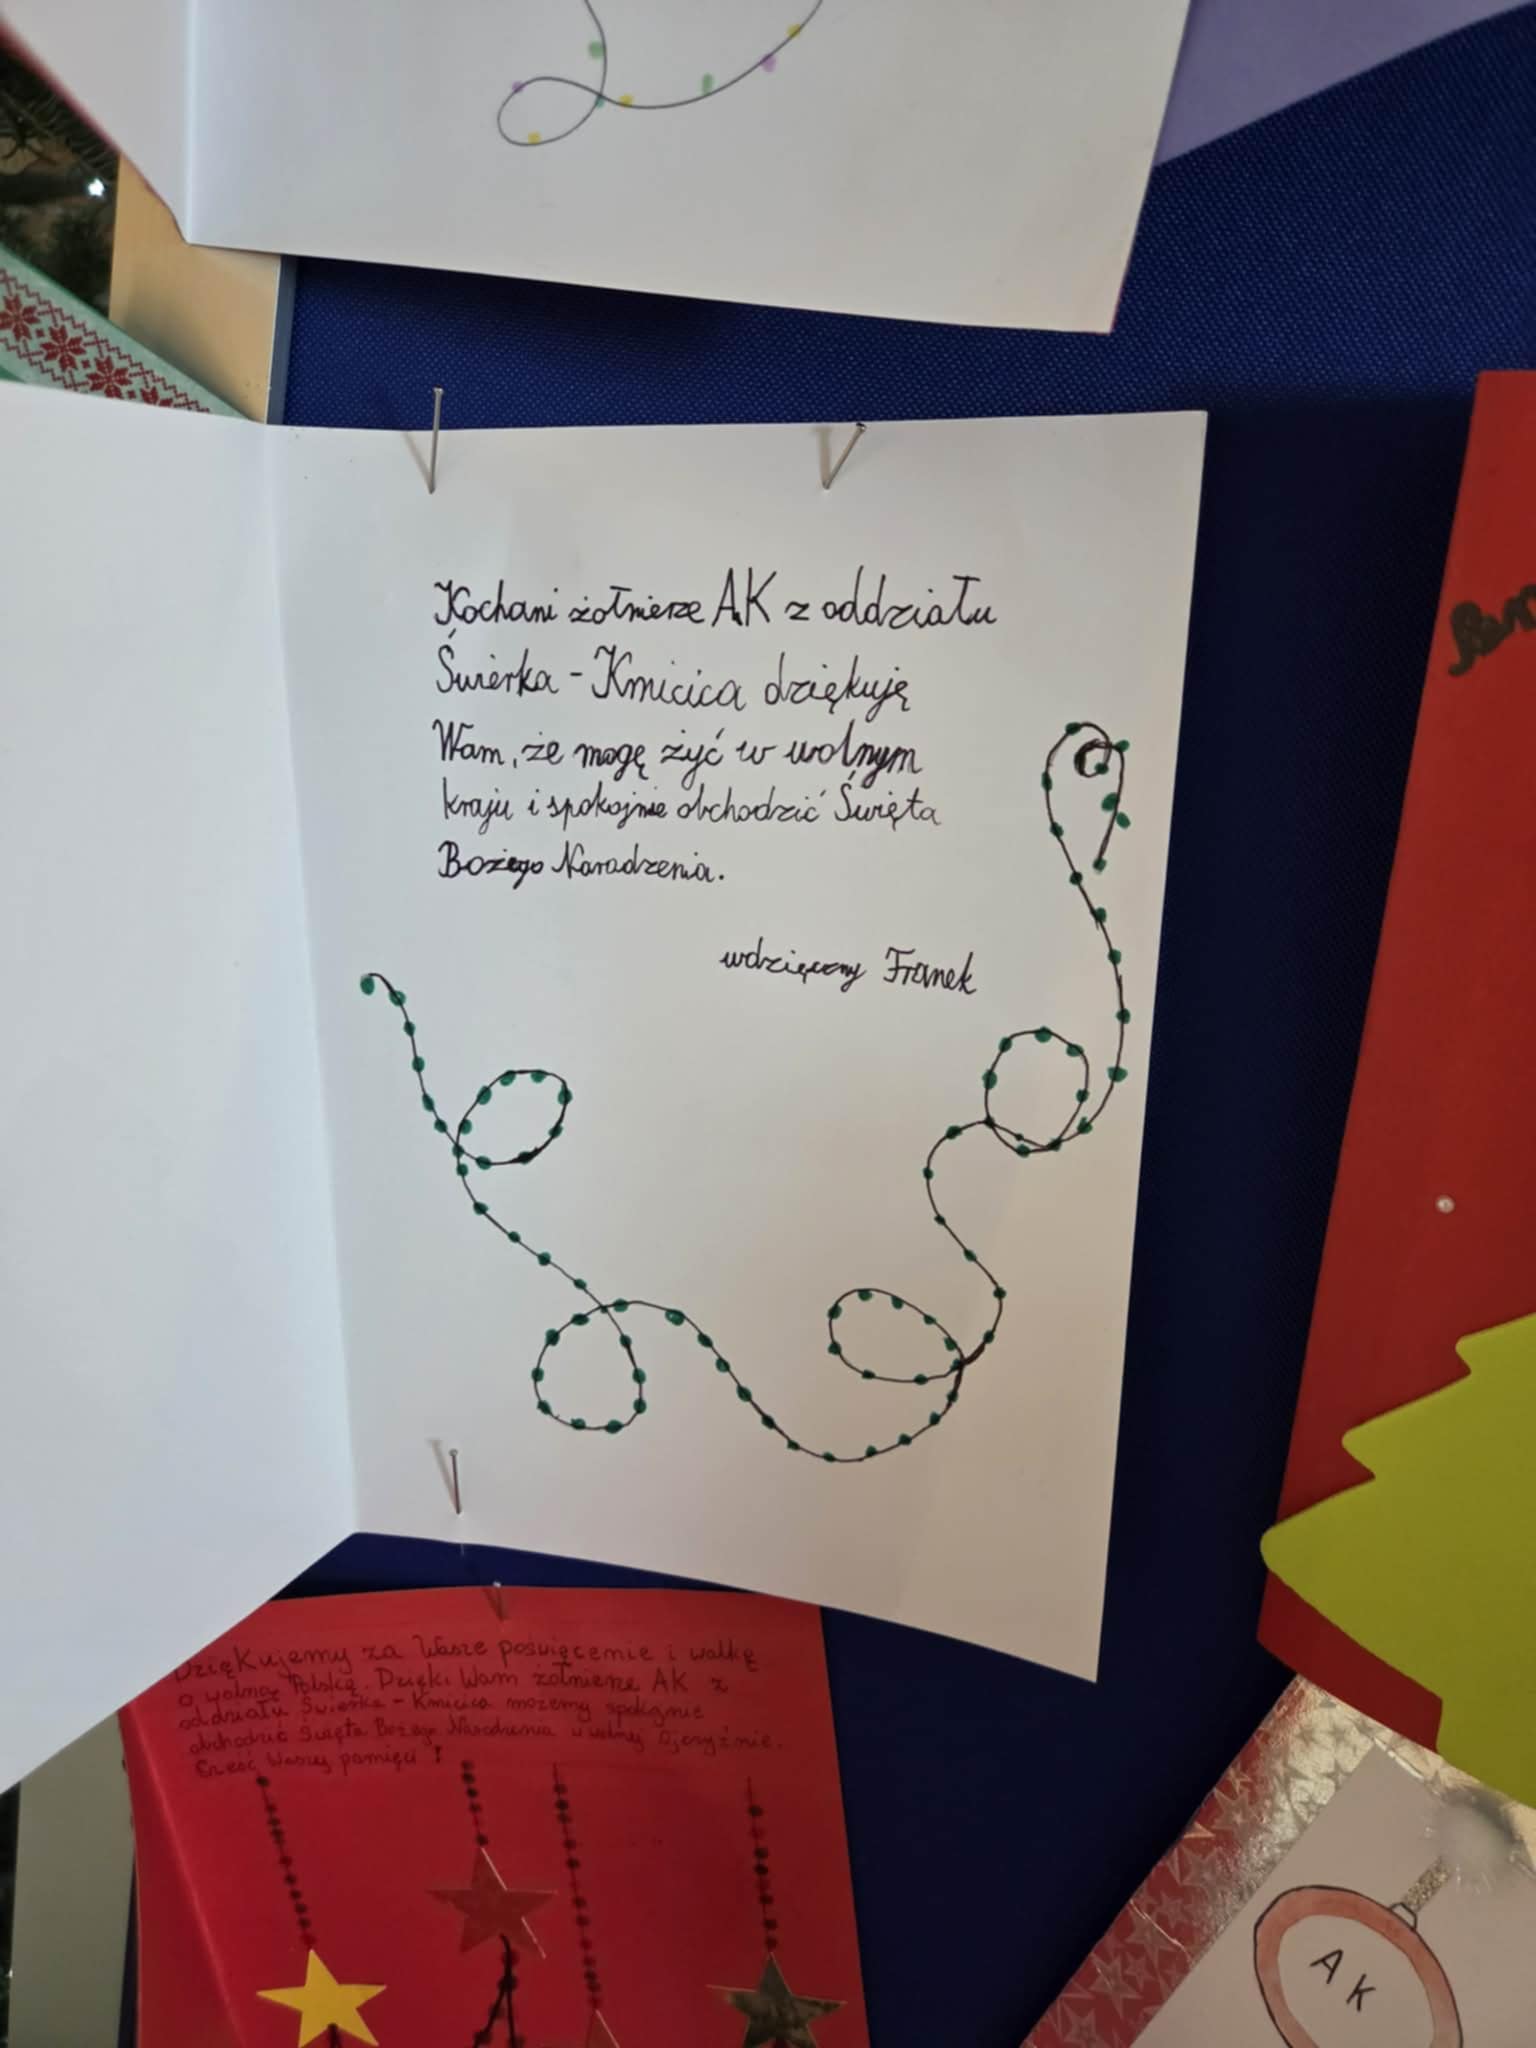 Kochani żołnierze AK z oddziału
Świerka - Kmicica dziękuję
Wam, że mogę żyć w wolnym
kraju i spokojnie obchodzić Święta
Bożego Narodzenia.
wdzięczny Franek
Dziękujemy za Wasze poświęcenie i walkę
o wolną Polskę. Dzięki Wam żołnierze AK z
oddziału Świerka - Kmicica możemy spokojnie
obchodzić Święta Bożego Narodzenia w wolnej Ojczyźnie.
Cześć Waszej pamięci!
AK